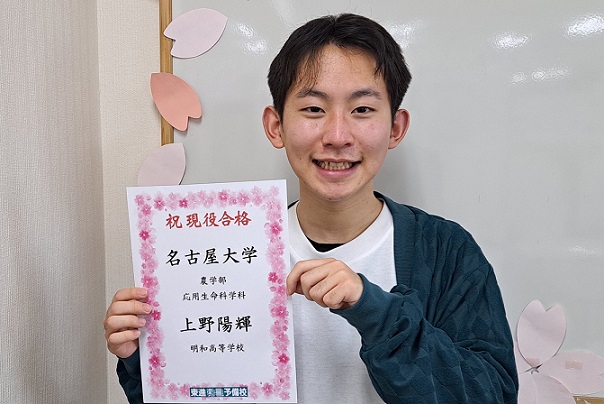 祝 現役合格
名古屋大学
農学部
応用生命科学科
上野陽輝
明和高等学校
東進衛星予備校